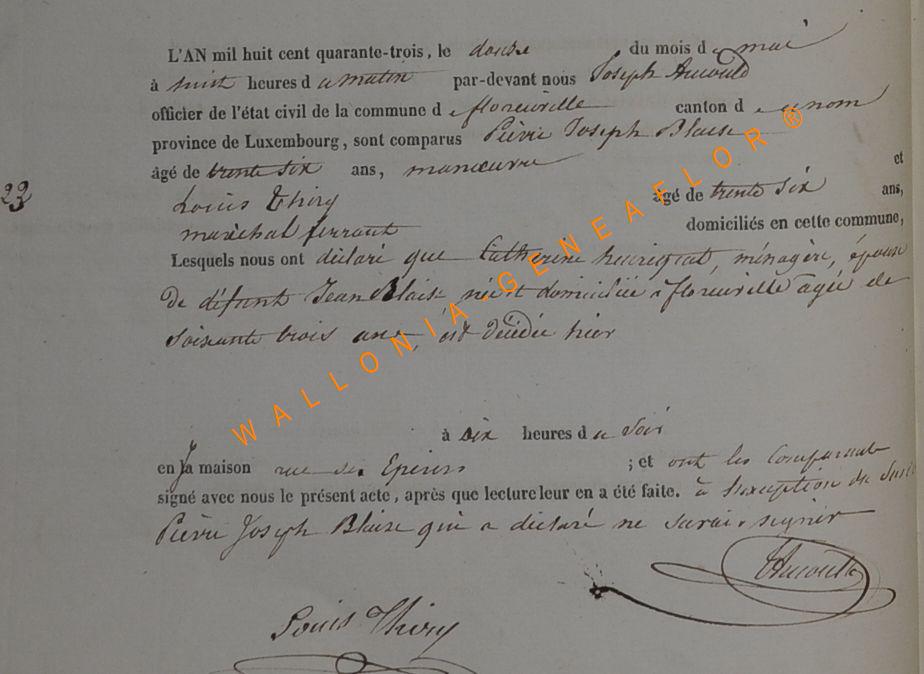 L'AN mil huit cent quarante-trois, le douze du mois de mai
à huit heures du matin par-devant nous Joseph Arnould
officier de l'état civil de la commune de florenville canton de ce nom
province de Luxembourg, sont comparus Pierre Joseph Blaise
âgé de trente six ans, manoeuvre et
23
Louis Thiry âgé de trente six ans,
maréchal ferrant domiciliés en cette commune,
Lesquels nous ont déclaré que Catherine henrignat, ménagère, épouse
de défunt Jean Blaise née et domiciliée à florenville agée de
soixante trois ans, est décédée hier
à dix heures du soir
en sa maison rue des Epiers ; et ont les comparants
signé avec nous le présent acte, après que lecture leur en a été faite. à l'exception du susdit
Pierre Joseph Blaise qui a déclaré ne savoir signer
JArnould
Louis Thiry
WALLONIA-GENEAFLOR ®